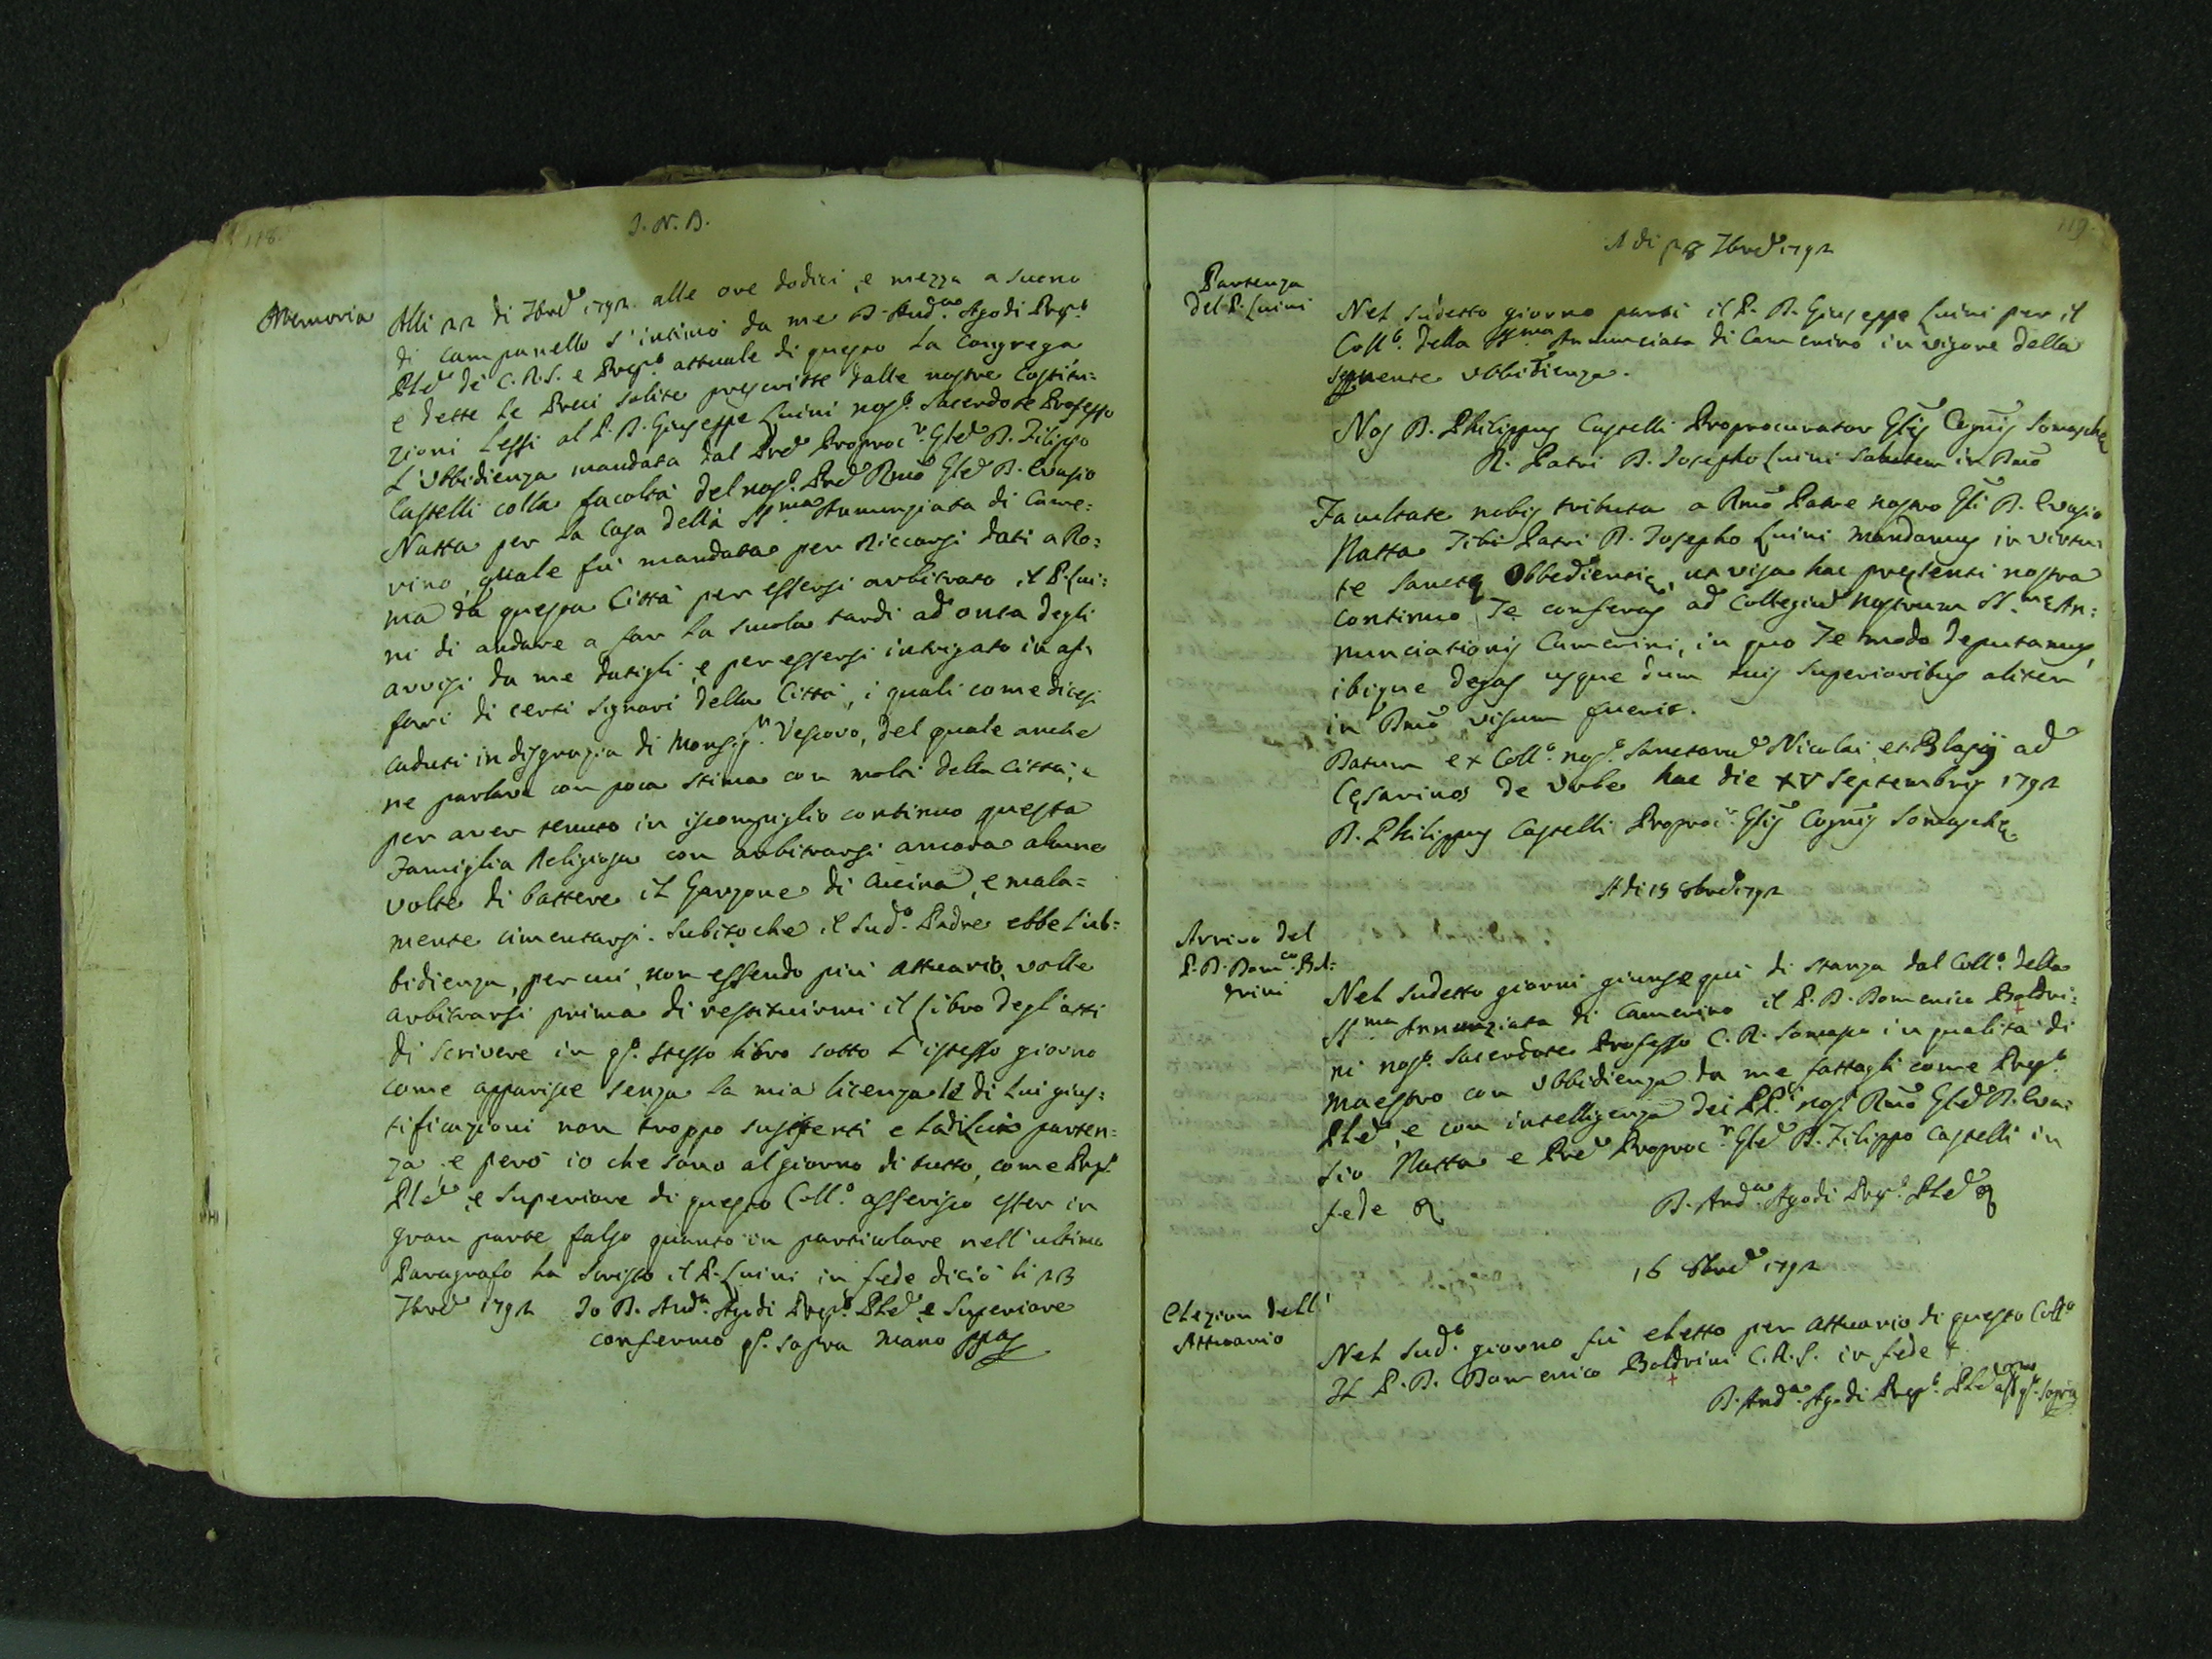 118.
I. N. D.
Memoria
Alli 22 di 7bre 1792. alle ore dodici, e mezza a suono
di campanello s'intimò da me D. And.ea Agodi Prep.to
Ple de' C.R.S. e Prep.to attuale di questo la Congrega
e dette le Preci solite prescritte dalle nostre Costitu=
zioni lessi al P. D. Giuseppe Luini nos.o Sacerdote Professo
L'Ubbidienza mandata dal Pre Proproc.r Gle D. Filippo
Castelli colla facoltà del nos.o Pre Rmo Gle D. Evasio
Natta per la Casa della SS.ma Annunziata di Came=
rino, quale fù mandata per Riccorsi dati a Ro=
ma da questa Città per essersi arbitrato il P. Lui=
ni di andare a far la scuola tardi ad onta degli
avvisi da me datigli, e per essersi intrigato in af=
fari di certi Signori della Città, i quali come dicesi
caduti in disgrazia di Monsig.r Vescovo, del quale anche
ne parlava con poca stima con molti della Città, e
per aver tenuto in iscompiglio continuo questa
Famiglia Religiosa con arbitrarsi ancora alcune
volte di battere il Garzone di Cucina, e mala=
mente cimentarsi. Subito che il sud.o Padre ebbe l'ub=
bidienza, per cui, non essendo più Attuario, volle
arbitrarsi prima di restituirmi il Libro degl'atti
di scrivere in q.o stesso libro sotto l'istesso giorno
come apparisce senza la mia licenza le di lui gius=
tificazioni non troppo sussistenti e la di lui parten=
za, e però io che sono al giorno di tutto, come Prep.to
Ple, e Superiore di questo Coll.o asserisco esser in
gran parte falso quanto in particolare nell'ultimo
Paragrafo ha scritto il P. Luini in fede di ciò li 23
7bre 1792 Io D. And.a Agodi Prep.to Ple, e Superiore
confermo q.o sopra mano ppa
119.
A di 28 7bre 1792
Partenza
del P. Luini
Nel sudetto giorno partì il P. D. Giuseppe Luini per il
Coll.o della SS.ma Annunciata di Camerino in vigore della
seguente ubbidienza.
Nos D. Philippus Castelli Proprocurator Glis Cognis Somaschę
R. Patri D. Josepho Luini Salutem in Dno
Facultate nobis tributa a Rmo Patre nostro Gli D. Evasio
Natta Tibi Patri D. Josepho Luini mandamus in virtu=
te Sanctę Obbedientię, ut visa hac presenti nostra
continuo Te conferas ad Collegium Nostrum SS.mę An=
nunciationis Camerini, in quo Te modo deputamus,
ibique degas usque dum tuis Superioribus aliter
in Dno visum fuerit.
Datum ex Coll.o nos.o Sanctorum Nicolai, et Blasij ad
Cęsarinos de Urbe hac die XV Septembris 1792
D. Philippus Castelli Proproc.r Glis Cognis Somaschę
A di 15 8bre 1792
Arrivo del
P. D. Dom.co Bol=
drini
Nel sudetto giorni giunse qui di stanza dal Coll.o della
SS.ma Annunziata di Camerino il P. D. Domenico Boldri=
ni nos.o Sacerdote Professo C. R. Somasco in qualità di
Maestro con Ubbidienza da me fattagli come Prep.to
Ple, e con intelligenza dei PP.i nos.i Rmo Gle D. Eva=
sio Natta e Pre Proproc.r Gle D. Filippo Castelli in
fede &
D. And.ea Agodi Prep.to Ple &
16 8bre 1792
Elezion dell'
Attuario
Nel Sud.o giorno fù eletto per Attuario di questo Coll.o
Il P. D. Domenico Boldrini C. R. S. in fede &
D. And.ea Agodi Prep.to Ple aff.mo q.to sopra